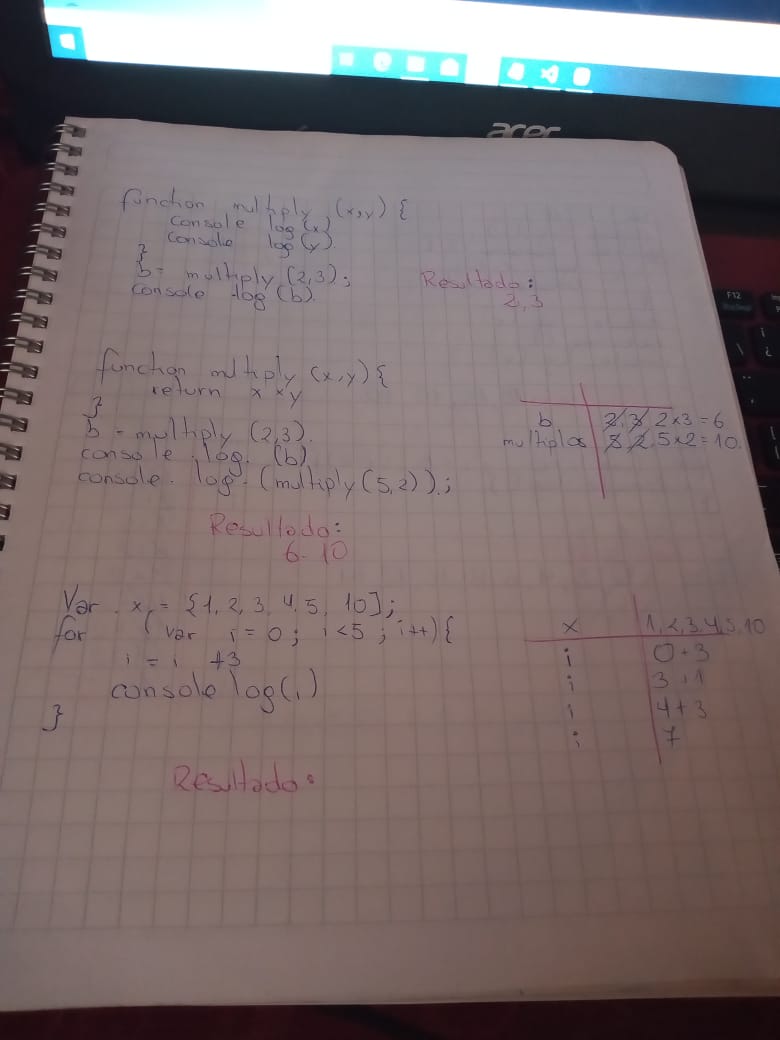 acer
F12
function multiply (x,y) {
console log (x)
console log (y).
}
b = multiply (2,3);
console log (b)
Resultado:
2,3
function multiply (x,y) {
return x * y
}
b = multiply (2,3).
console . log. (b)
console. log. (multiply (5,2)).;
b 2,3, 2x3=6
multiplos 5,2, 5x2=10.
Resultado:
6. 10
Var x = {1, 2, 3, 4, 5, 10];
for ( var i = 0; i <5 ; i++) {
i = i +3
console log(i)
}
x 1,2,3,4,5,10
i 0+3
i 3+1
i 4+3
i 7
Resultado: